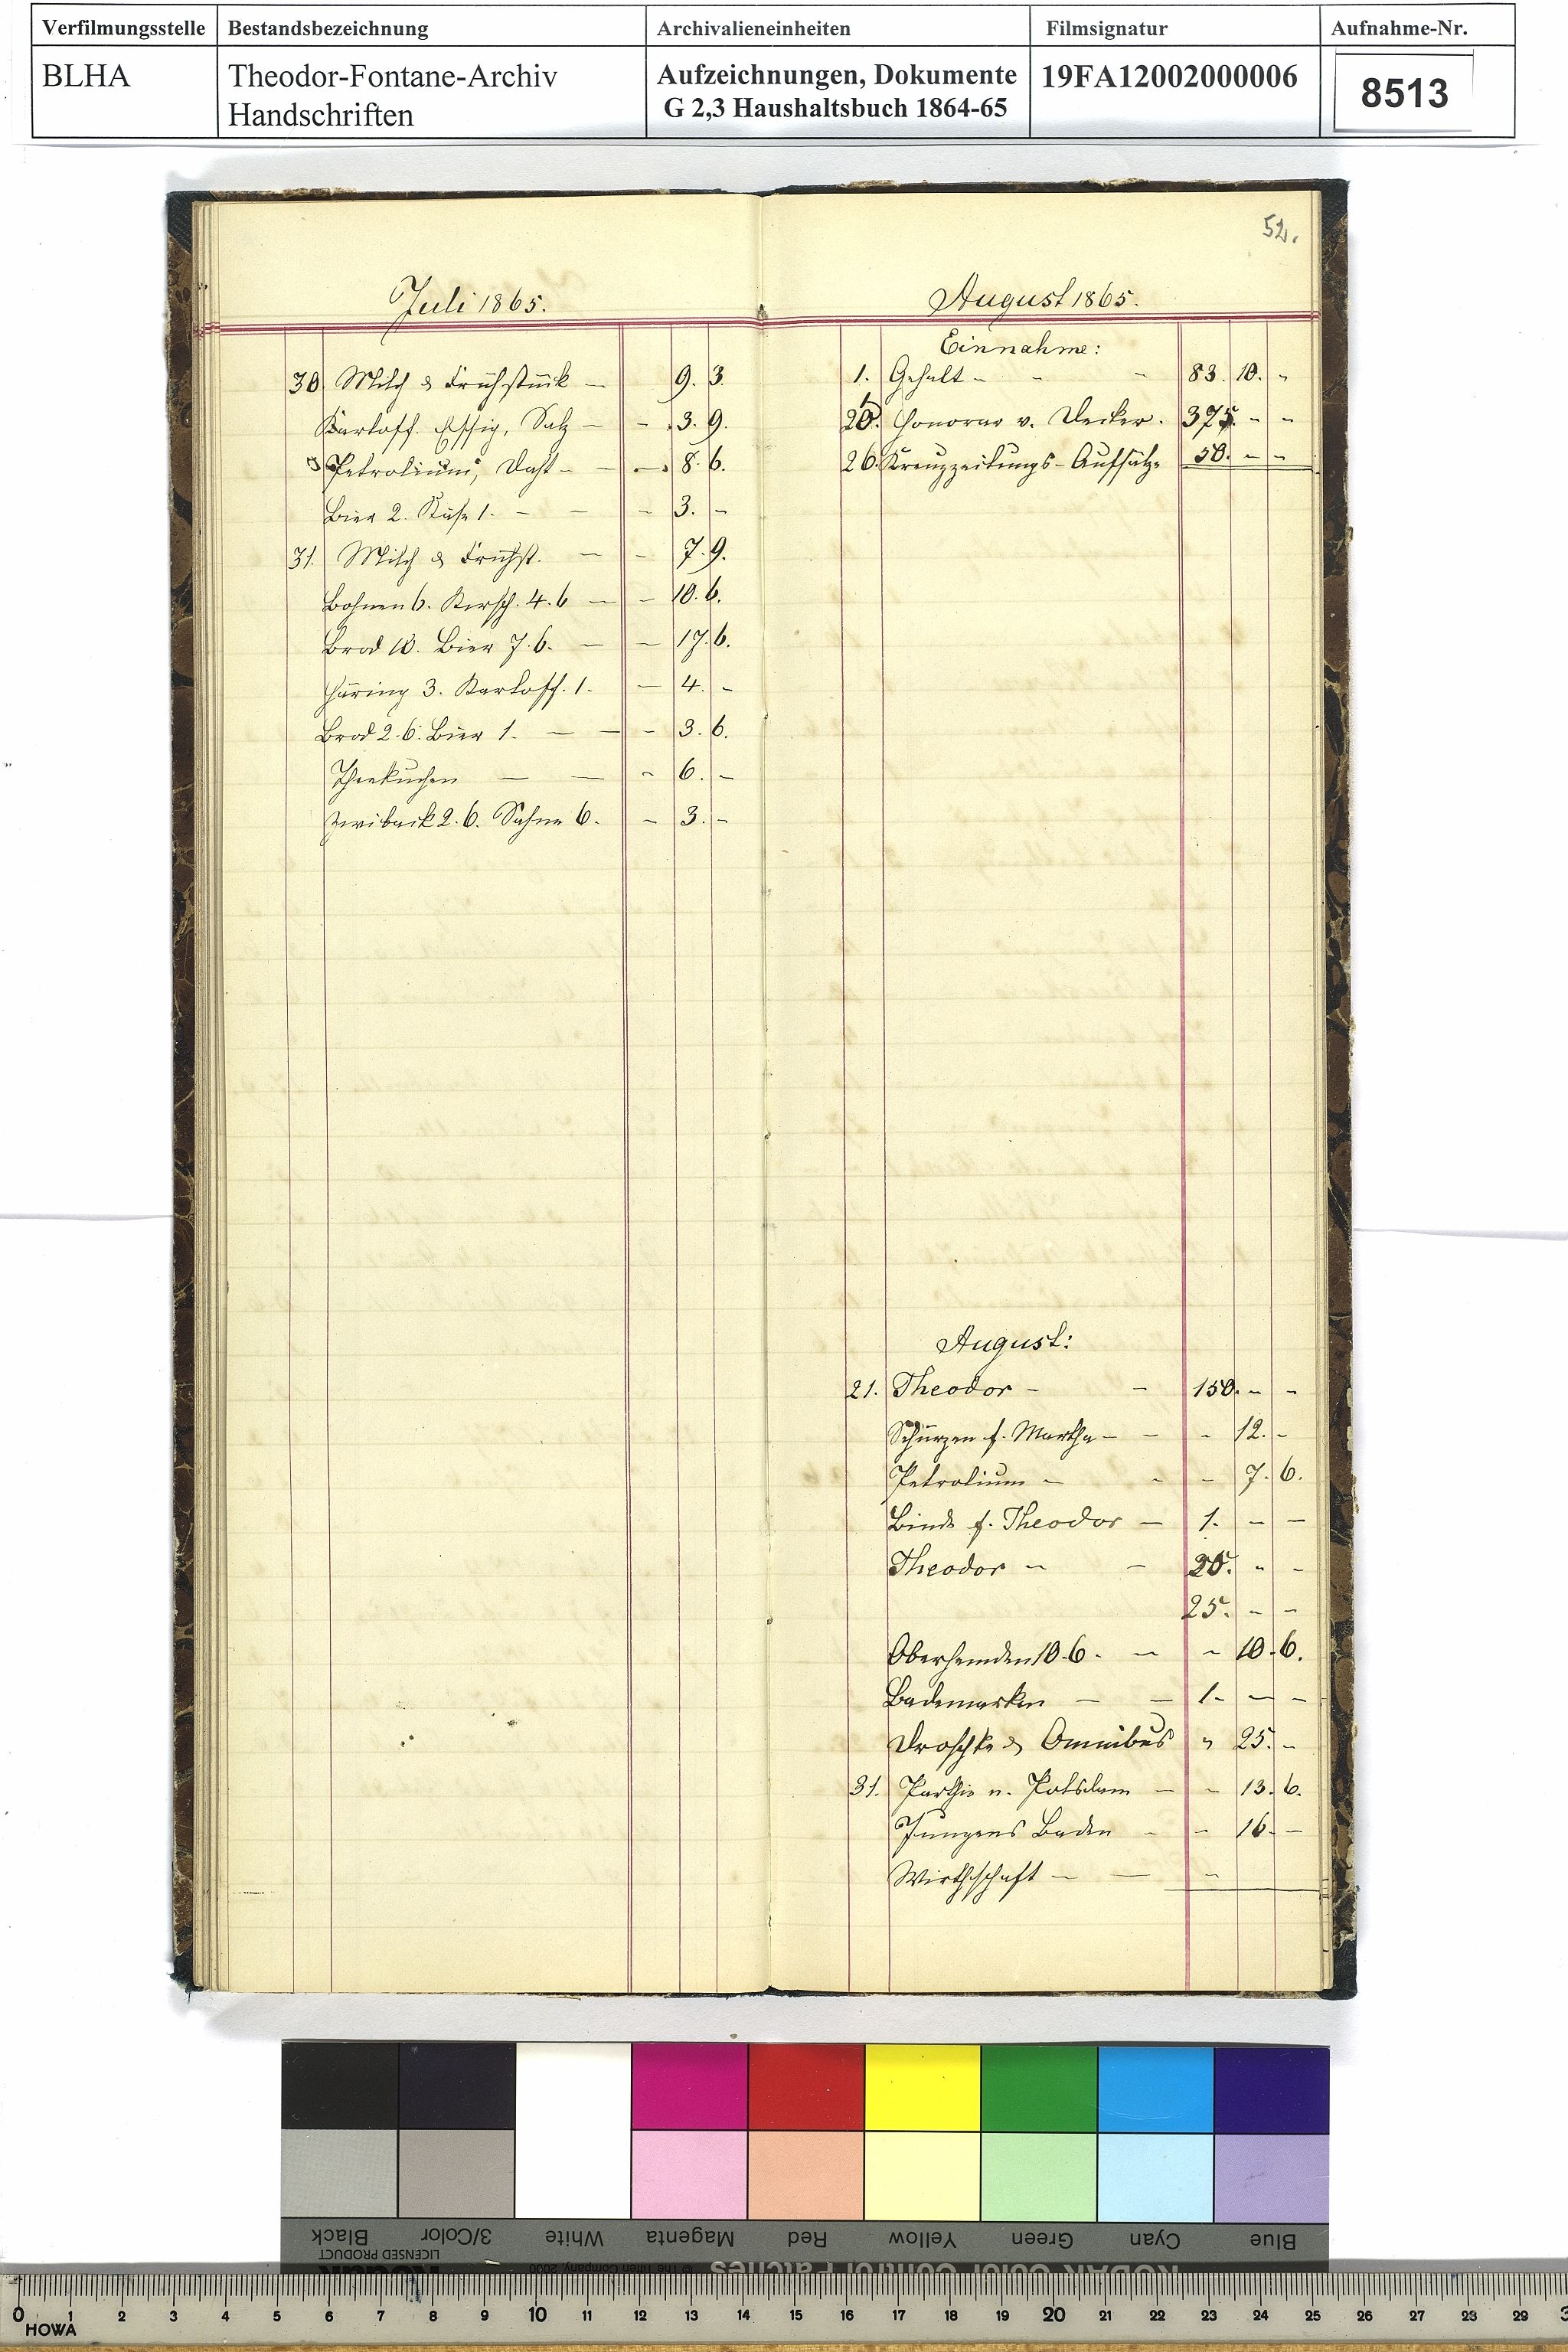 Verfilmungsstelle Bestandsbezeichnung Archivalieneinheiten Filmsignatur Aufnahme-Nr.
BLHA Theodor-Fontane-Archiv Handschriften Aufzeichnungen, Dokumente G 2,3 Haushaltsbuch 1864-65 19FA12002000006 8513
Juli 1865.
30. Milch & Frühstück - 9. 3.
Kartoff. Essig, Salz - - 3. 9.
Petrolium, Docht - - 8. 6.
Bier 2. Käse 1. - - - 3. -
31. Milch & Frühst. - - 7. 9.
Bohnen 6. Kirsch. 4.6 - - 10. 6.
Brod 10. Bier 7.6. - - 17. 6.
Häring 3. Kartoff. 1. - 4. -
Brod 2.6. Bier 1. - - - 3. 6.
Theekuchen - - - 6. -
Zwieback 2.6. Sahne 6. - 3. -
52.
August 1865.
Einnahme:
1. Gehalt - - - 83. 10. -
20. Honorar v. Decker. 375. - -
26. Kreuzzeitungs-Aufsätze 50. - -
August:
21. Theodor - - 150. - -
Schürzen f. Martha - - - 12. -
Petrolium - - - 7. 6.
Binde f. Theodor - 1. - -
Theodor - - - -
25. - -
Oberhemden 10.6. - - 10. 6.
Bademarken - - 1. - -
Droschke & Omnibus " 25. -
31. Parthie n. Potsdam - - 13. 6.
Jungens Baden - - 16. -
Wirthschaft - - -
Black 3/Color White Magenta Red Yellow Green Cyan Blue
LICENSED PRODUCT
© The Tiffen Company, 2000
KODAK Color Control Patches
0 1 2 3 4 5 6 7 8 9 10 11 12 13 14 15 16 17 18 19 20 21 22 23 24 25 26 27 28 29 3
HOWA